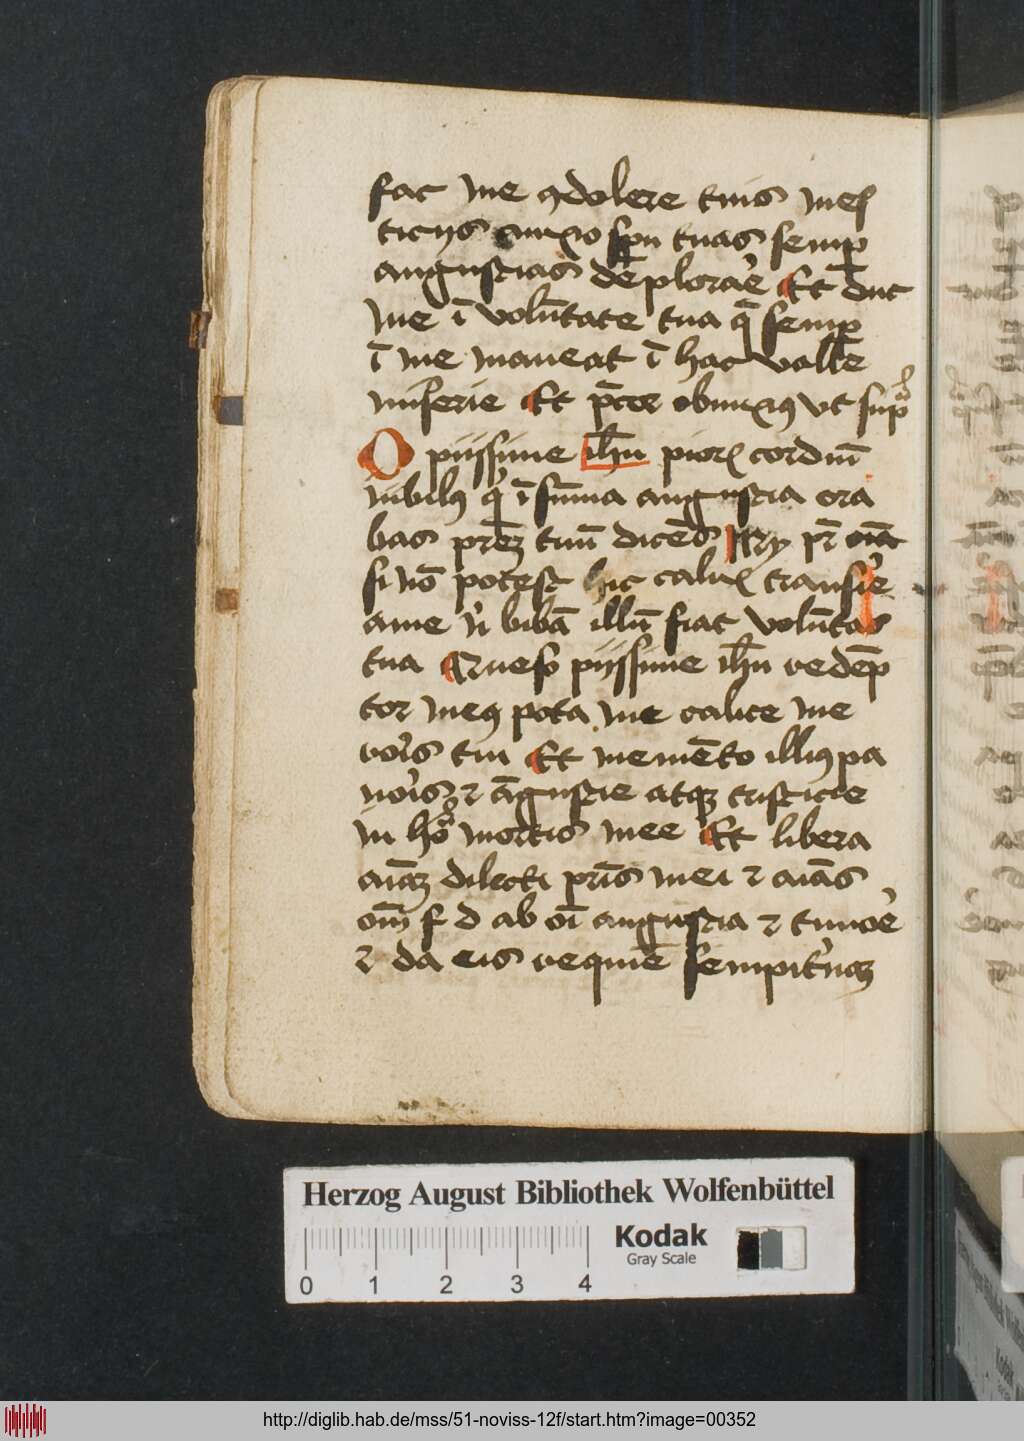 fac me ꝯdolere tuis mes
ticijs spu tuas semꝑ
angustias deplorare Et duc
me ī volūtate tua semꝑ
ī me maneat ī hac valle
miserie Et p̄cor vt supra
O piissime ih̄u pioꝝ cordiū
iubilꝰ qⁱ ī sūma angustia ora
bas prēꝫ tuū dicēs pr̄
si nō potest hic calix transire
a me nⁱ bibā illū fiat volūtas
tua Queso piissime ih̄u redēp
tor meꝰ pota me calice me
roris tui Et memēto illiꝰ pa
uoris ⁊ āgustie atqꝫ tristicie
in hora mortis mee Et libera
aīaꝫ dilecti pr̄is mei ⁊ aīas
om̄ f d ab oī angustia ⁊ timore
⁊ da eis requiē sempiternaꝫ
Herzog August Bibliothek Wolfenbüttel
Kodak
Gray Scale
0 1 2 3 4
http://diglib.hab.de/mss/51-noviss-12f/start.htm?image=00352